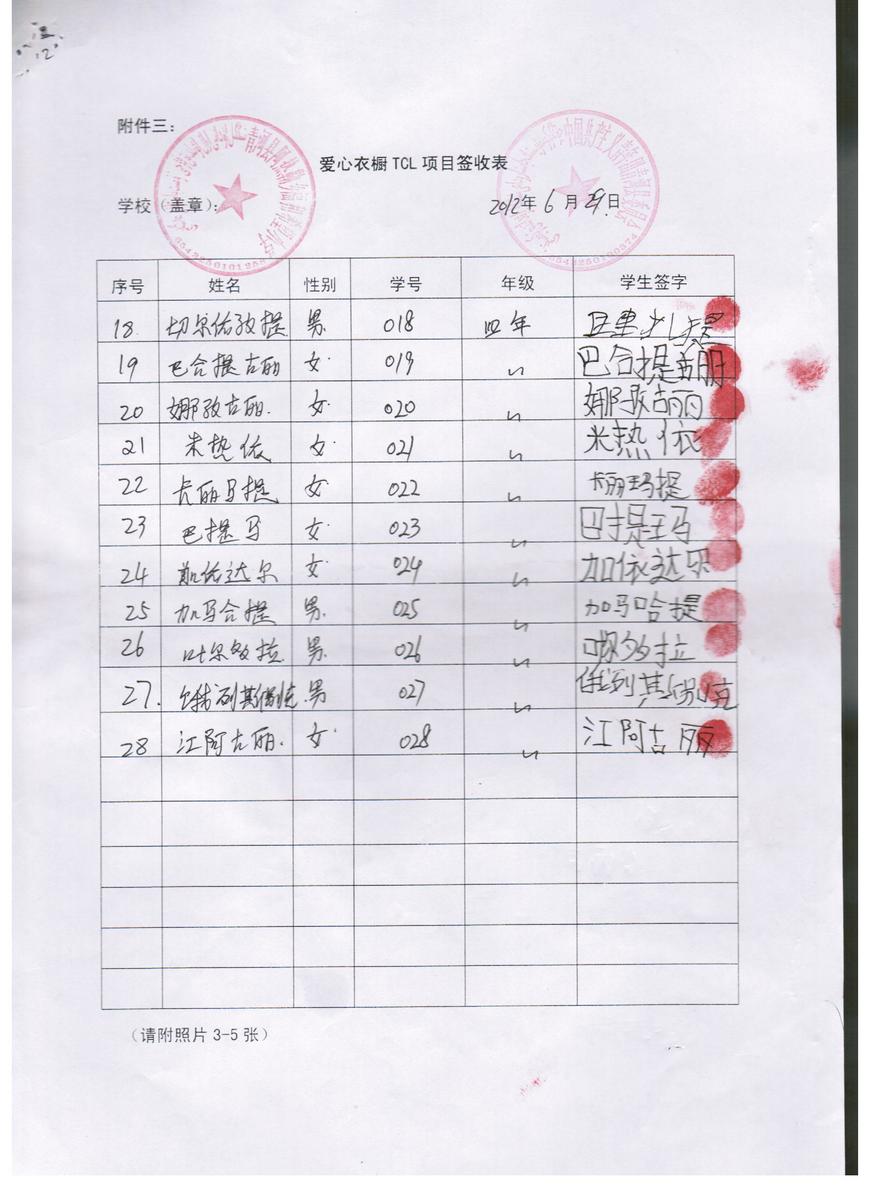 附件三：
爱心衣橱 TCL 项目签收表
学校（盖章）： 2012年 6 月 29 日
序号 姓名 性别 学号 年级 学生签字
18. 男 018 四年
19 巴合提古丽 女 019 〃 巴合提古丽
20 娜孜古丽. 女 020 〃 娜孜古丽
21 米热依 女 021 〃 米热依
22 卡丽玛提 女 022 〃 卡丽玛提
23 巴提马 女 023 〃 巴提玛
24 加依达尔 女 024 〃 加依达尔
25 加马合提 男. 025 〃 加马哈提
26 叶尔多拉 男. 026 〃
27. 俄列斯别克 男 027 〃
28 江阿古丽. 女 028 〃 江阿古丽
（请附照片 3-5 张）